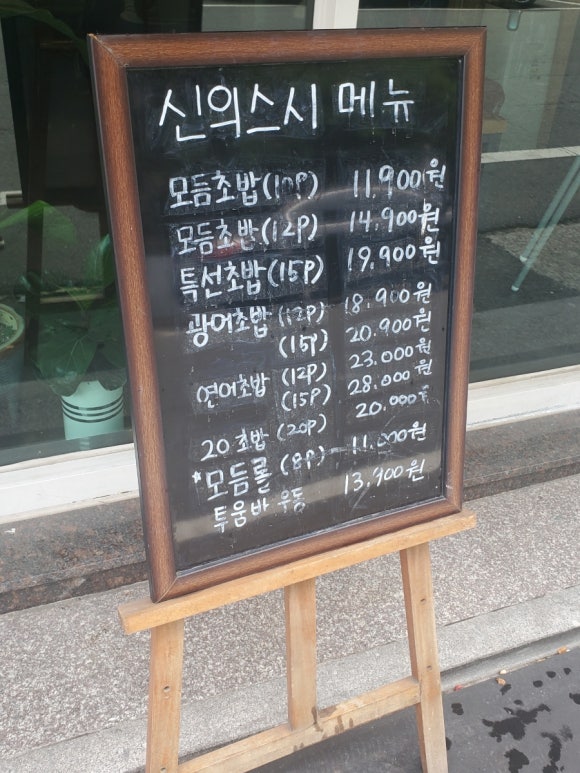 신의스시 메뉴
모듬초밥(10P) 11,900원
모듬초밥(12P) 14,900원
특선초밥(15P) 19,900원
광어초밥(12P) 18,900원
(15P) 20,900원
연어초밥(12P) 23,000원
(15P) 28,000원
20초밥(20P) 20,000원
*모듬롤(8P) 11,000원
투움바 우동 13,900원